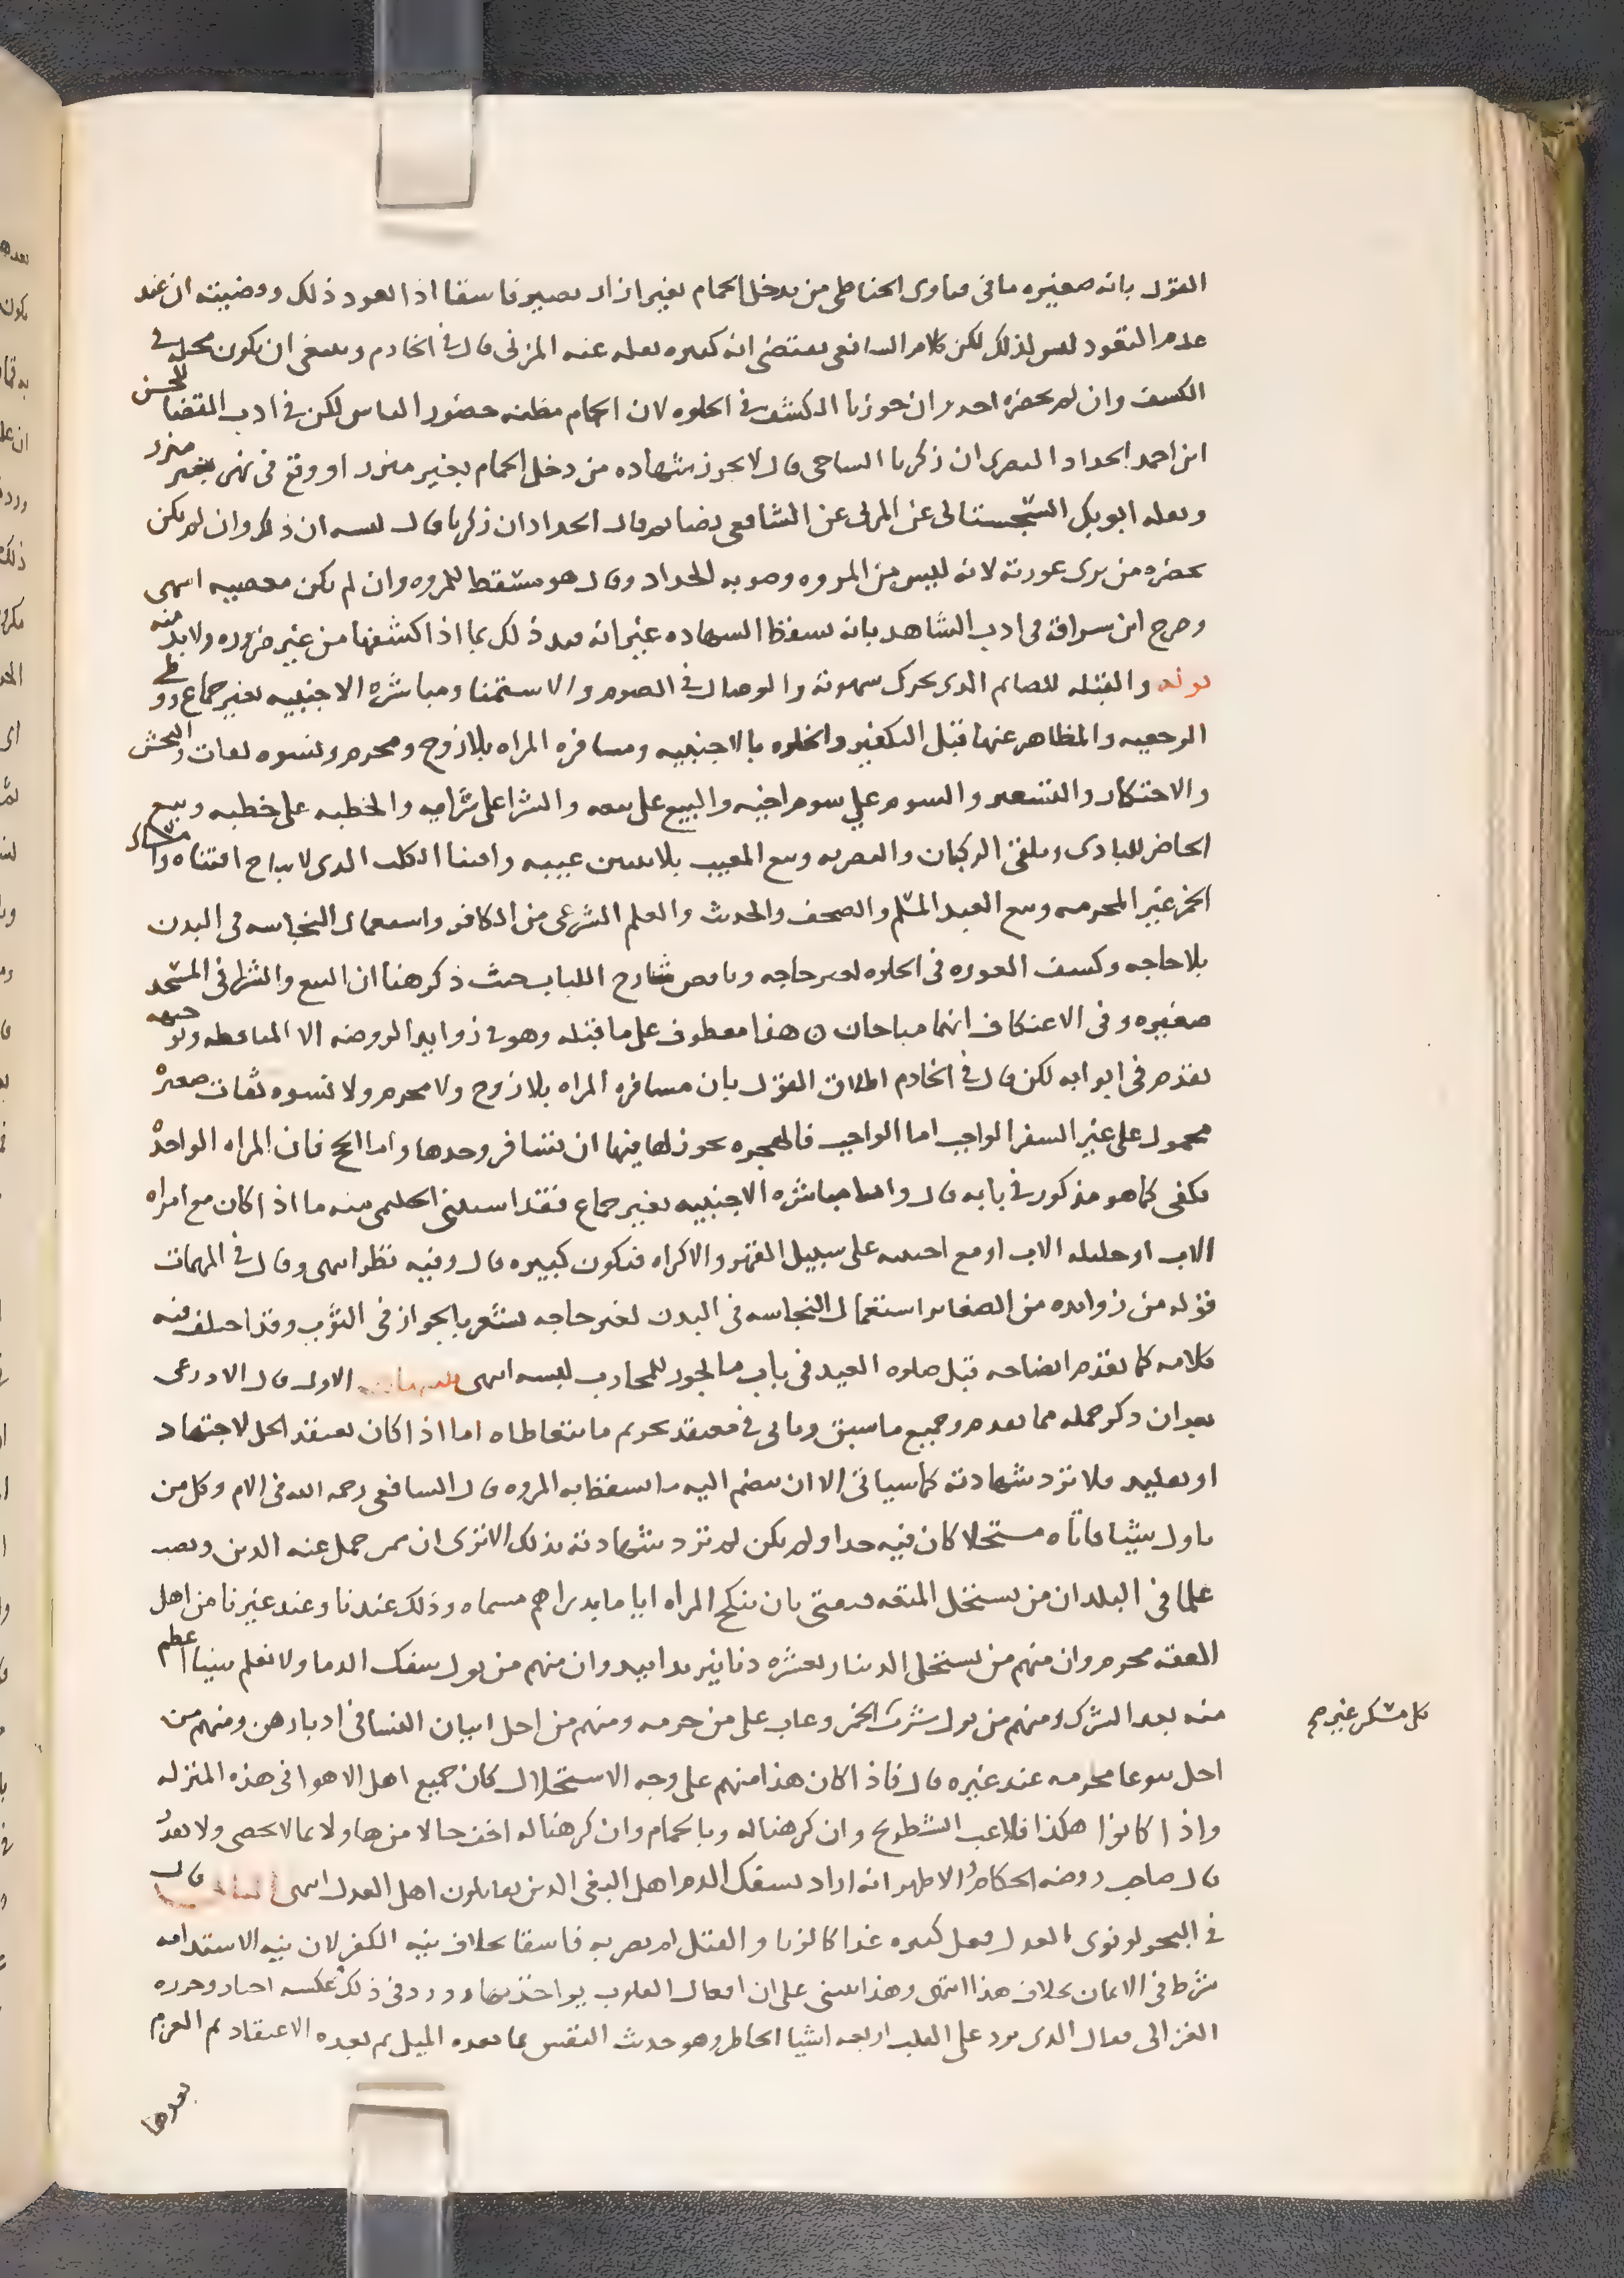 القول بانه صغيره ما في فتاوى الحناطي من يدخل الحمام بغير ازار يصير فاسقا اذا تعود ذلك وقضيته ان عند
عدم التعود ليس كذلك لكن كلام الشافعي يقتضي انه كبيره نقله عنه المزني قال في الخادم وينبغي ان يكون محله في
الكشف وان لم يحضره احد وان جوزنا الكشف في الخلوه لان الحمام مظنه حضور الناس لكن في ادب القضا للحسن
ابن احمد الحداد البصري ان زكريا الساجي قال لا يجوز شهاده من دخل الحمام بغير مئزر او وقع في نهر بغير مئزر
ونقله ابو بكر السجستاني عن المزني عن الشافعي نصا ثم قال الحداد ان زكريا قال يشبه ان ذلك وان لم يكن
يحضره من يرى عورته لانه ليس من المروه وصوبه الحداد وقال هو مسقط للمروه وان لم يكن معصيه انتهى
وصرح ابن سراقه في ادب الشاهد بانه يسقط الشهاده غير انه قيد ذلك بما اذا كشفها من غير ضروره ولا بد منه
قوله والقبله للصائم الذي تحرك شهوته والوصال في الصوم والاستمنا ومباشره الاجنبيه بغير جماع ووطي
الرجعيه والمظاهر عنها قبل التكفير والخلوه بالاجنبيه ومسافره المراه بلا زوج ومحرم ونسوه ثقات والنجش
والاحتكار والتسعير والسوم علي سوم اخيه والبيع على بيعه والشرا على شرايه والخطبه على خطبه وبيع
الحاضر للبادى وتلقي الركبان والتصريه وبيع المعيب بلا تبيين عيبه واقتنا الكلب الذي لا يباح اقتناه وامساك
الخمر غير المحرمه وبيع العبد المسلم والمصحف والحديث والعلم الشرعي من الكافر واستعمال النجاسه في البدن
بلا حاجه وكشف العوره في الخلوه لغير حاجه وناقض شارح اللباب حيث ذكر هنا ان البيع والشرا في المسجد
صغيره وفي الاعتكاف انهما مباحان ن هذا معطوف على ما قبله وهو في زوايد الروضه الا المناقضه وتوجيهه
تقدم في ابوابه لكن قال في الخادم اطلاق القول بان مسافره المراه بلا زوج ولا محرم ولا نسوه ثقات صغيره
محمول على غير السفر الواجب اما الواجب فالهجره يجوز لها فيها ان تسافر وحدها واما الحج فان المراه الواحده
تكفي كما هو مذكور في بابه قال واما مباشره الاجنبيه بغير جماع فقد استثنى الحليمي منه ما اذا كان مع امراه
الاب او حليله الاب او مع اجنبيه على سبيل القهر والاكراه فتكون كبيره قال وفيه نظر انتهى وقال في المهمات
قوله من زوايده من الصغاير استعمال النجاسه في البدن لغير حاجه يشعر بالجواز في الثوب وقد اختلف فيه
كلامه كما تقدم ايضاحه قبل صلوه العيد في باب ما يجوز للمحارب لبسه انتهى تنبيهات الاول قال الاذرعي
بعد ان ذكر جمله مما تقدم وجميع ما سبق وياتي في معتقد تحريم ما يتعاطاه اما اذا كان يعتقد الحل لاجتهاد
او تقليد فلا ترد شهادته كما سياتي الا ان ينضم اليه ما يسقط به المروه قال الشافعي رحمه الله في الام وكل من
تاول شيئا فاتاه مستحلا كان فيه حدا ولم يكن لم ترد شهادته بذلك الا ترى ان ممن حمل عنه الدين ونصب
علما في البلدان من يستحل المتعه فيفتي بان ينكح المراه اياما بدراهم مسماه وذلك عندنا وعند غيرنا من اهل
الفقه محرم وان منهم من يستحل الدينار بعشره دنانير يدا بيد وان منهم من تاول سفك الدما ولا نعلم شيئا اعظم
منه بعد الشرك ومنهم من تاول شرب الخمر وعاب على من حرمه ومنهم من احل اتيان النسا في ادبارهن ومنهم من
كل مسكر غير صح
احل بيوعا محرمه عند غيره قال فاذا كان هذا منهم على وجه الاستحلال كان جميع اهل الاهوا في هذه المنزله
واذا كانوا هكذا فلاعب الشطرنج وان كرهنا له وبالحمام وان كرهنا له اخف حالا من هاولا بما لا يحصى ولا يعد
قال صاحب روضه الحكام والاظهر انه اراد بسفك الدم اهل البغي الذين يقاتلون اهل العدل انتهى الثاني قال
في البحر لو نوى العدل فعل كبيره غدا كالزنا والقتل لم يصر به فاسقا بخلاف نيه الكفر لان نيه الاستدامه
شرط في الايمان بخلاف هذا انتهى وهذا ينبني على ان افعال القلوب يواخذ بها وورد في ذلك وعكسه اخبار وحرره
الغزالي فقال الذي يرد على القلب اربعه اشيا الخاطر وهو حديث النفس بما بعده الميل ثم بعده الاعتقاد ثم العزم
بعدها